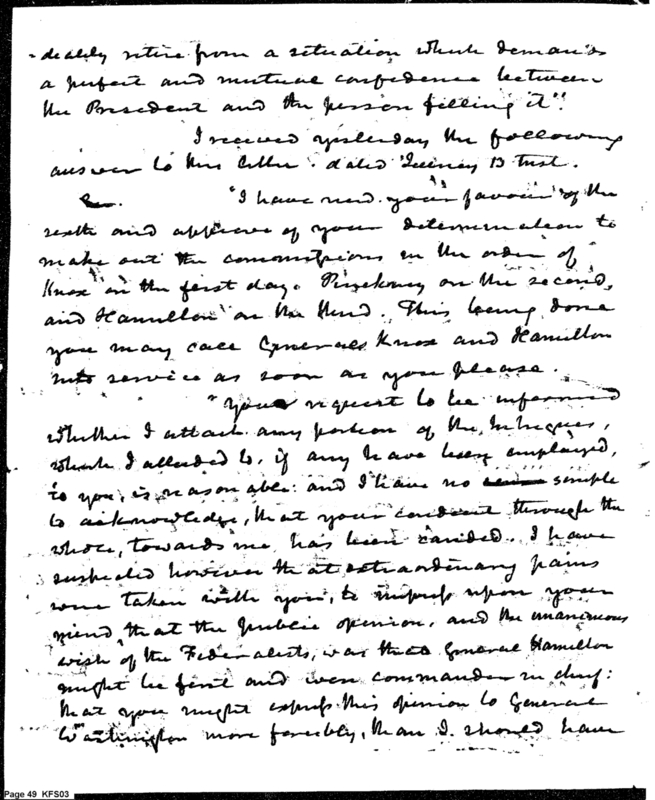 -diately retire from a situation which demands
a perfect and mutual confidence between
the President and the person filling it".
I received yesterday the following
answer to this letter. dated Quincy 13 Inst.
"I have recd. your favour of the
sixth and approve of your determination to
make out the commissions in the order of
Knox on the first day. Pinckney on the second,
and Hamilton on the third. This being done
you may call Generals Knox and Hamilton
into service as soon as you please.
"Your request to be informed
whether I attach any portion of the intrigues,
which I alluded to, if any have been employed,
to you, is reasonable: and I have no scruple
to acknowledge, that your conduct through the
whole, towards me, has been candid. I have
suspected however that extraordinary pains
were taken with you, to impress upon your
mind that the public opinion, and the unanimous
wish of the Federalists, was that General Hamilton
might be first and even commander in chief:
that you might express this opinion to General
Washington more forcibly, than I should have
Page 49 KFS03